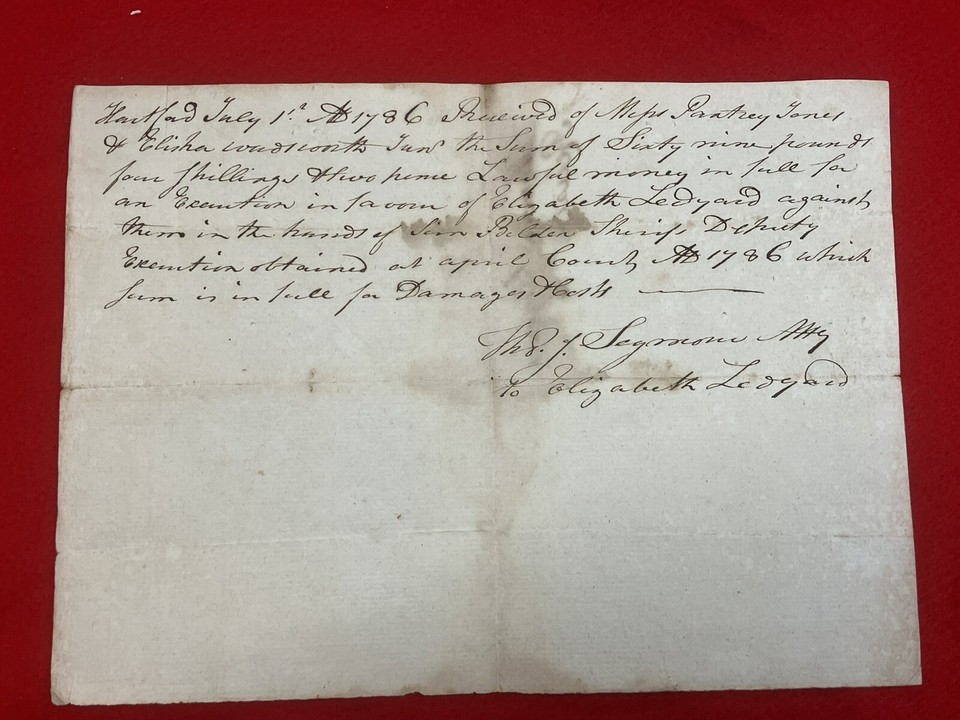 Hartford July 1st AD 1786 Received of Mess Pantrey Jones
& Elisha Wadsworth Junr the Sum of Sixty nine pounds
four shillings & two pence Lawful money in full for
an Execution in favour of Elizabeth Ledyard against
them in the hands of Sim Belden Sherifs Deputy
Execution obtained at april Court AD 1786 which
Sum is in full for Damages & Costs
Tho. Y. Seymour Atty
to Elizabeth Ledyard